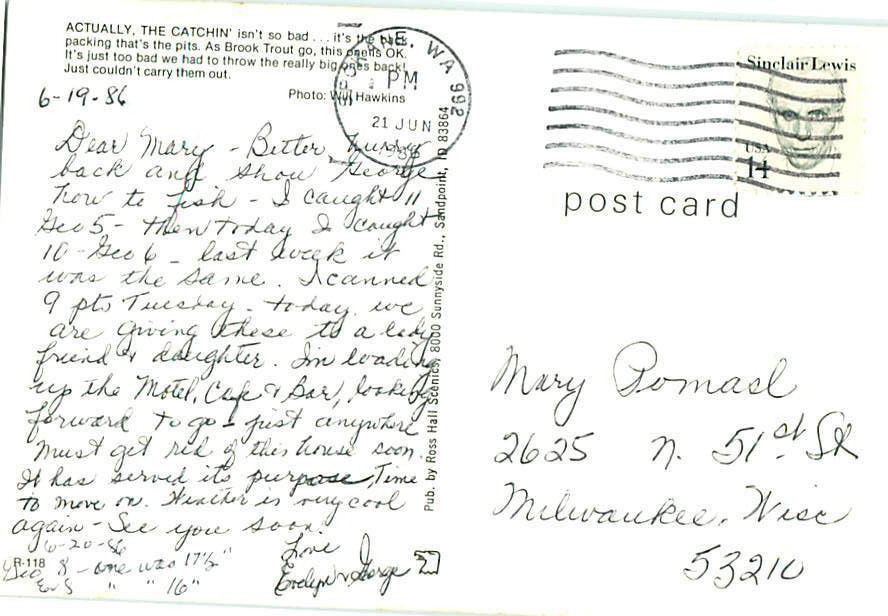 ACTUALLY, THE CATCHIN' isn't so bad ... it's the back
packing that's the pits. As Brook Trout go, this one is OK.
It's just too bad we had to throw the really big ones back!
Just couldn't carry them out.
Photo: Will Hawkins
6-19-86
Dear Mary - Better hurry
back and show George
how to fish - I caught 11
Geo 5 - then today I caught
10 - Geo 6 - last week it
was the same. I canned
9 pts Tuesday - today we
are giving these to a lady
friend & daughter. Im loading
up the Motel, Cafe & Bar, looking
forward to go - just anywhere
Must get rid of this house soon.
It has served its purpose, Time
to move on. Weather is very cool
again - See you soon.
6-20-86
Love
Evelyn & George
R-118
Geo 8 - one was 17½"
Ev 8 " " 16"
Pub. by Ross Hall Scenics, 8000 Sunnyside Rd., Sandpoint, ID 83864
SPOKANE, WA 992
PM
21 JUN
1986
Sinclair Lewis
USA
14
post card
Mary Pomasl
2625 N. 51st St
Milwaukee, Wisc
53210